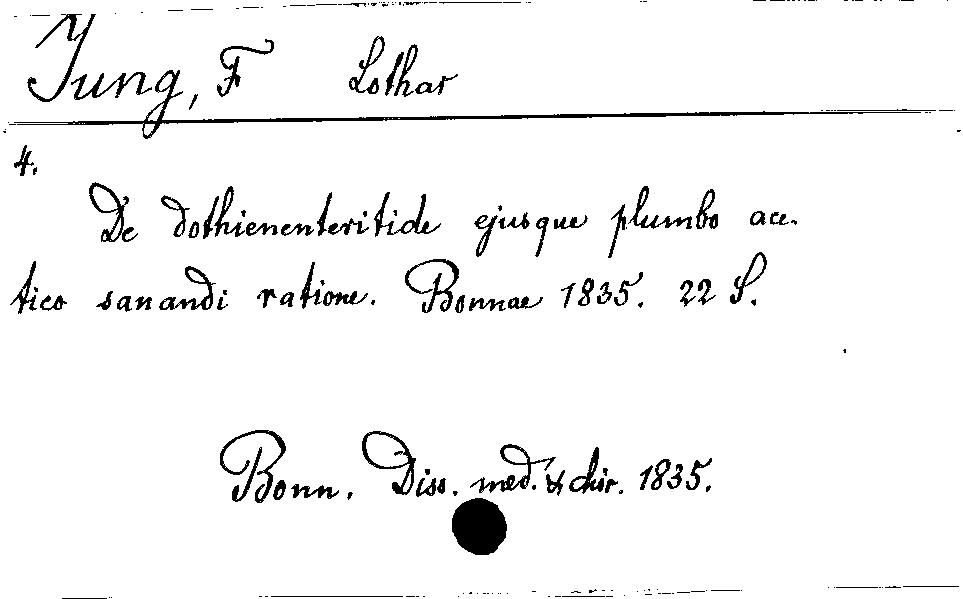 Jung, F Lothar
4.
De dothienenteritide ejusque plumbo ace-
tico sanandi ratione. Bonnae 1835. 22 S.
Bonn. Diss. med. & chir. 1835.